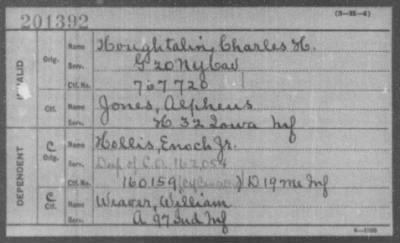 201392
(3-35-6)
INVALID
Orig.
Name Houghtalin, Charles H.
Serv. G 20 NY Cav
Ctf. No. 767720
Ctf.
Name Jones, Alpheus
Serv. H 32 Iowa Inf
DEPENDENT
C Orig.
Name Hollis, Enoch Jr.
Serv. Dup of C.O. 162,054
Ctf. No. 160159 D 19 Me Inf
C Ctf.
Name Weaver, William
Serv. A 97 Ind Inf